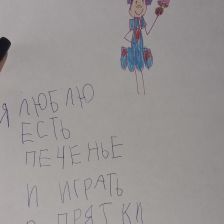 Я ЛЮБЛЮ
ЕСТЬ
ПЕЧЕНЬЕ
И ИГРАТЬ
В ПРЯТКИ